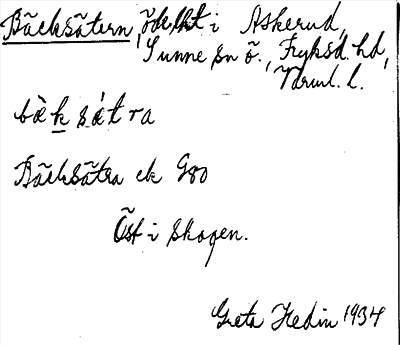 Bäcksätern, ödelht i Askerud,
Sunne sn ö., Fryksd. hd,
Värml. l.
bäk sätra
Bäcksätra ek G80
Öst i skogen.
Greta Hedin 1934